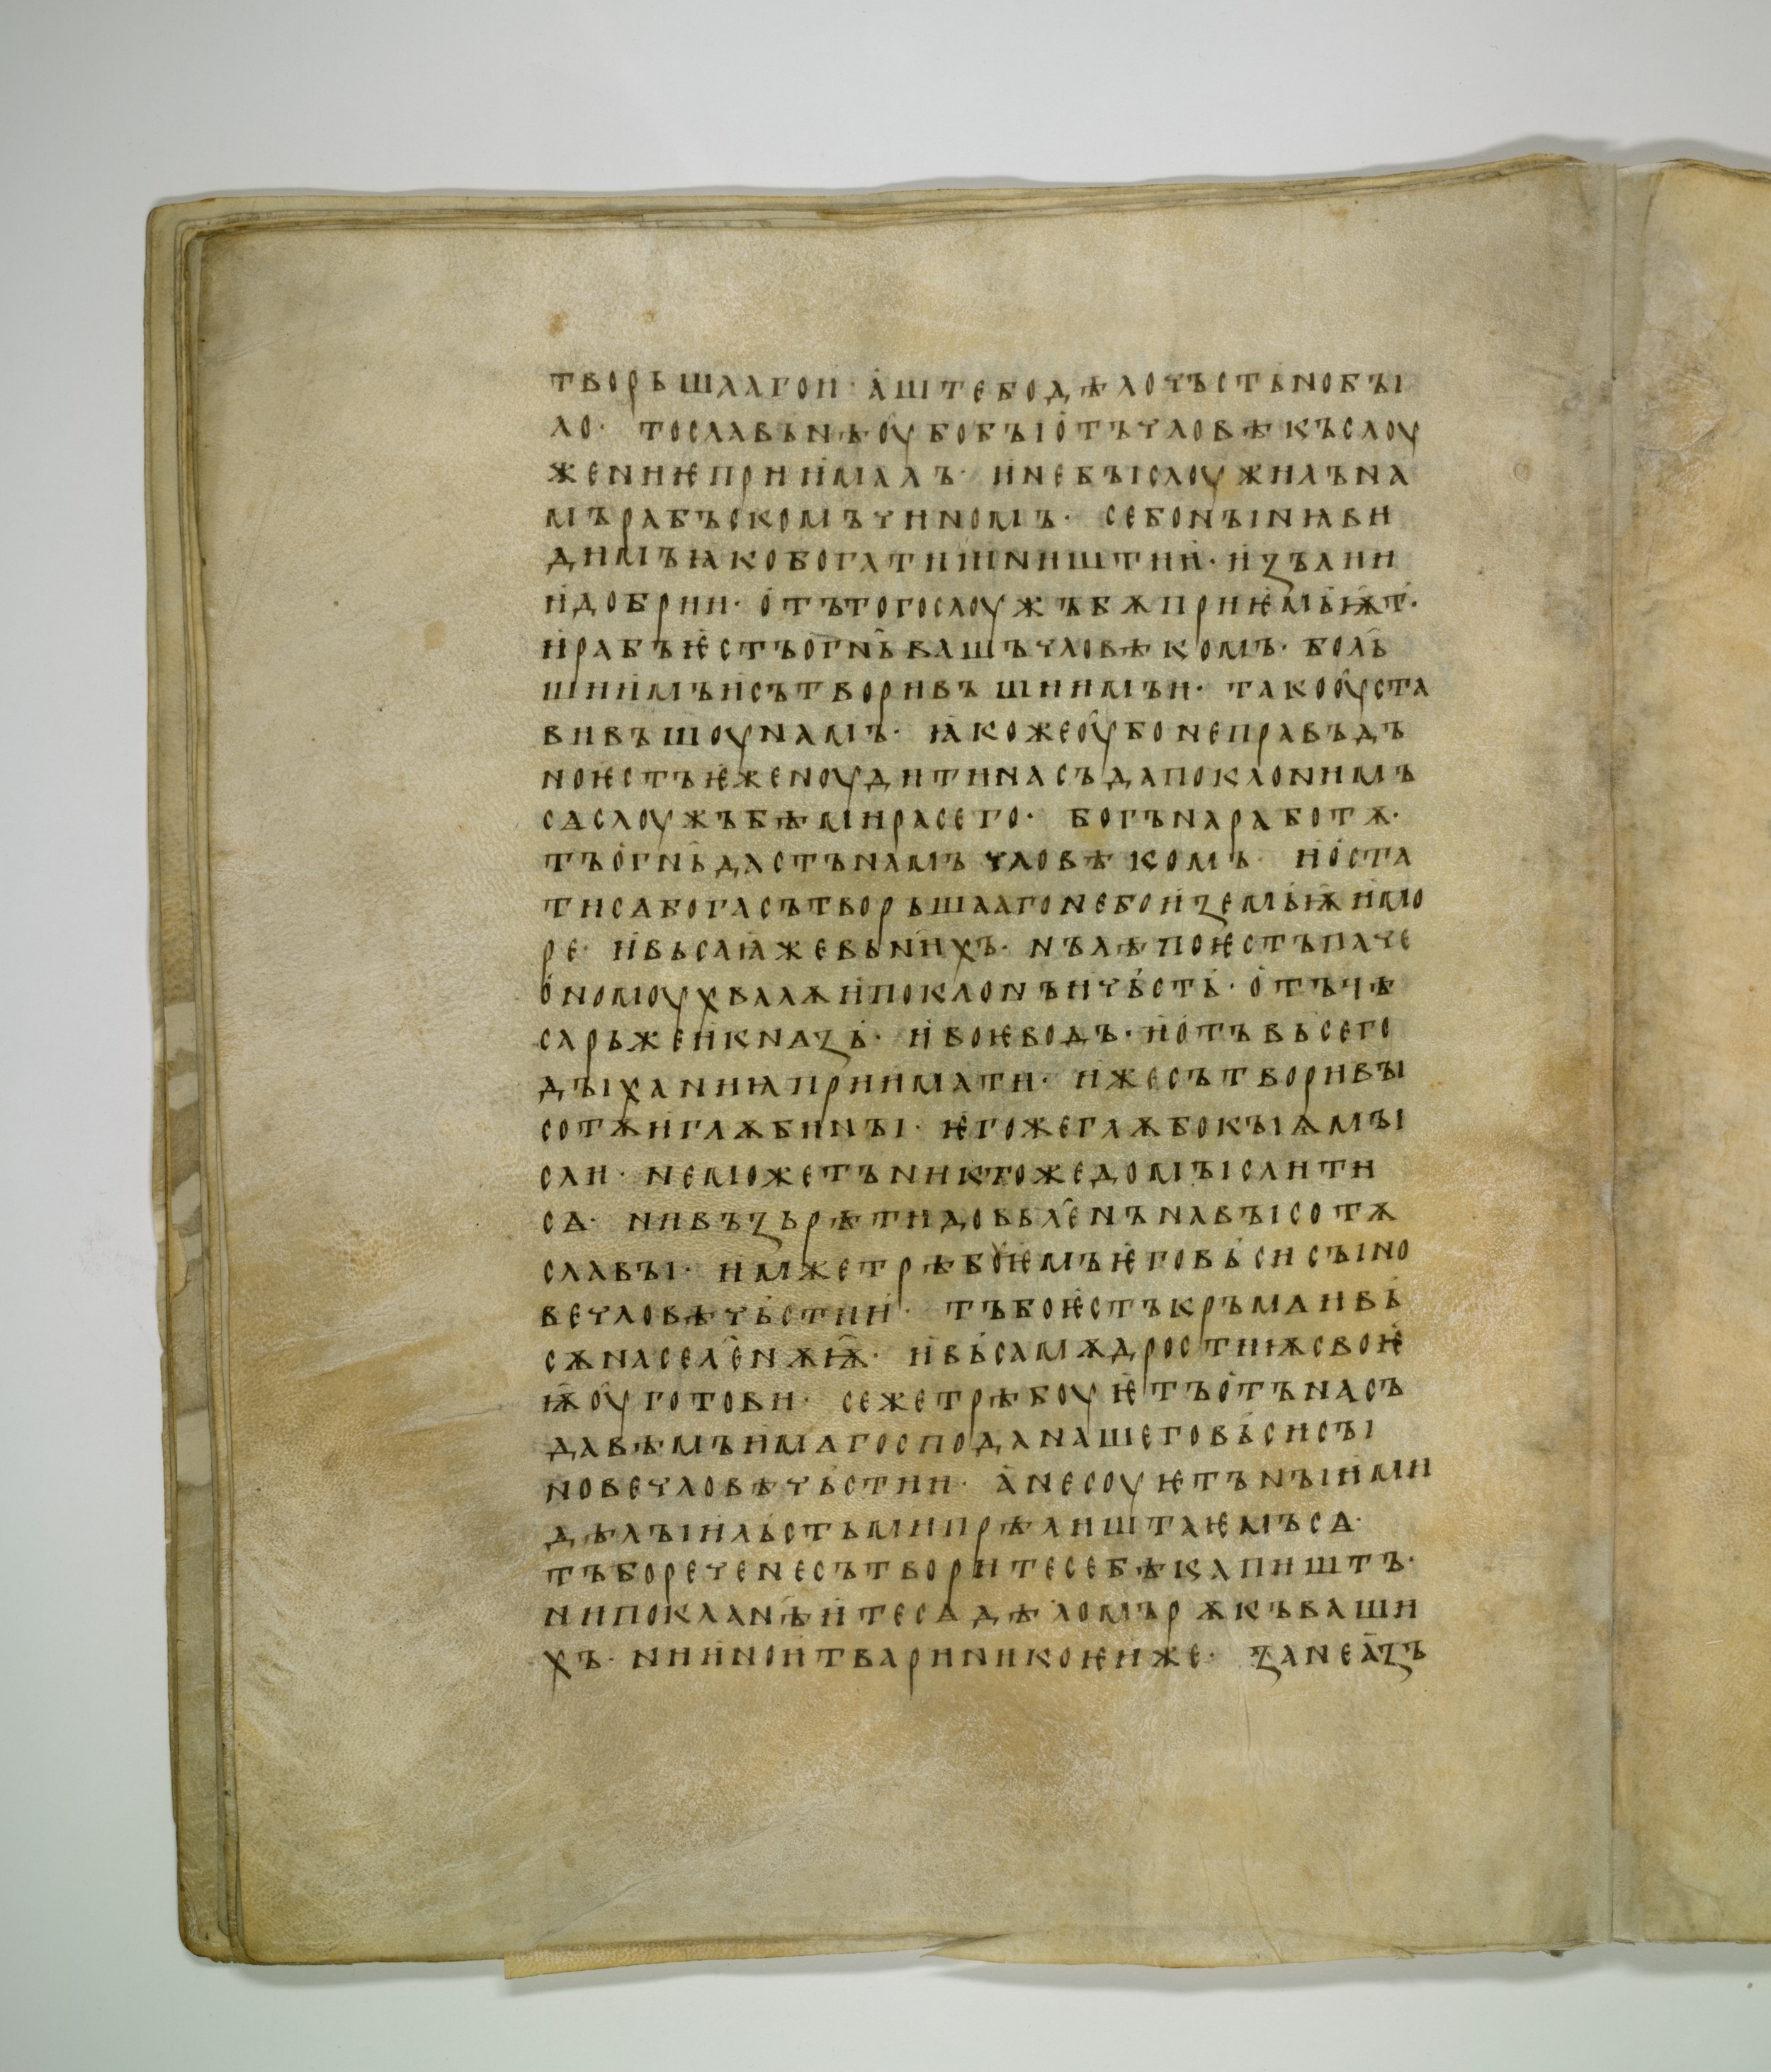 творьшааго и· аште бо дѣло чьстьно бꙑ
ло· то славьнѣ оубо бꙑ отъ чловѣкъ слоу
жениѥ приималъ· и не бꙑ слоужилъ на
мъ рабъскомъ чиномъ· се бо нꙑнꙗ ви
димъ ꙗко богатии и ништии· и зълии
и добрии· отъ того слоужъбѫ приѥмьѭт·
и рабъ ѥстъ огн҄ь вашъ чловѣкомъ· бол҄ь
шиимъ и сътворивъшиимъ и· тако оуста
вивъшоу намъ· ꙗкоже оубо неправьдъ
но ѥстъ ѥже ноудити насъ да поклонимъ
сѧ слоужъбѣ мира сего· богъ на работѫ·
тъ огн҄ь дастъ намъ чловѣкомъ· и оста
ти сѧ бога сътворьшааго небо и земьѭ и мо
ре· и вьса ꙗже вь нихъ· нъ лѣпо ѥстъ паче
ономоу хвалѫ и поклонъ и чьсть· отъ цѣ
сарь же и кнѧзь· и воѥводъ· и отъ вьсего
дꙑханиꙗ приимати· иже сътвори вꙑ
сотѫ и глѫбинꙑ· ѥгоже глѫбокꙑѧ мꙑ
сли· не можетъ никтоже домꙑслити
сѧ· ни възьрѣти довьл҄енъ на вꙑсотѫ
славꙑ· имже трѣбоуѥмъ ѥго вьси сꙑно
ве чловѣчьстии· тъ бо ѥстъ кръмѧи вь
сѫ насел҄енѫѭ· и вьса мѫдростиѭ своѥ
ѭ оуготови· се же трѣбоуѥтъ отъ насъ
да вѣмъ имѧ господа нашего вьси сꙑ
нове чловѣчьстии· а не соуѥтънꙑими
дѣлꙑ и льстьми прѣлиштаѥмъ сѧ·
тъ бо рече не сътворите себѣ капиштъ·
ни поклан҄ѣите сѧ дѣломъ рѫкъ ваши
хъ· ни иной твари никоѥиже· зане азъ